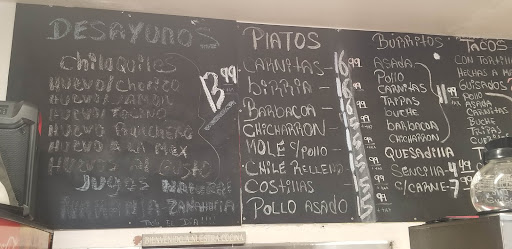 DESAYUNOS
Chilaquiles
HUEVO/Chorizo
HUEVO/JAMON
HUEVO
HUEVO Ranchero
HUEVO a la Mex
HUEVO al GUSTO
13.99
JUGOS
NARANJA - ZANAHORIA
PLATOS
CARNITAS - 16.99
BIRRIA - 16
BARBACOA - 16
CHICHARRON - 15
MOLE c/pollo - 15
CHILE RELLENO - 15
COSTILLAS - 15
POLLO ASADO 15
BURRITOS
ASADA
POLLO
CARNITAS
TRIPAS
BUCHE
BARBACOA
CHICHARRON
11.99
QUESADILLA
SENCILLA - 4.99
C/CARNE - 7.99
TACOS
CON TORTILL
HECHAS A MA
GUISADOS
POLLO
ASADA
CARNITAS
BUCHE
TRIPAS